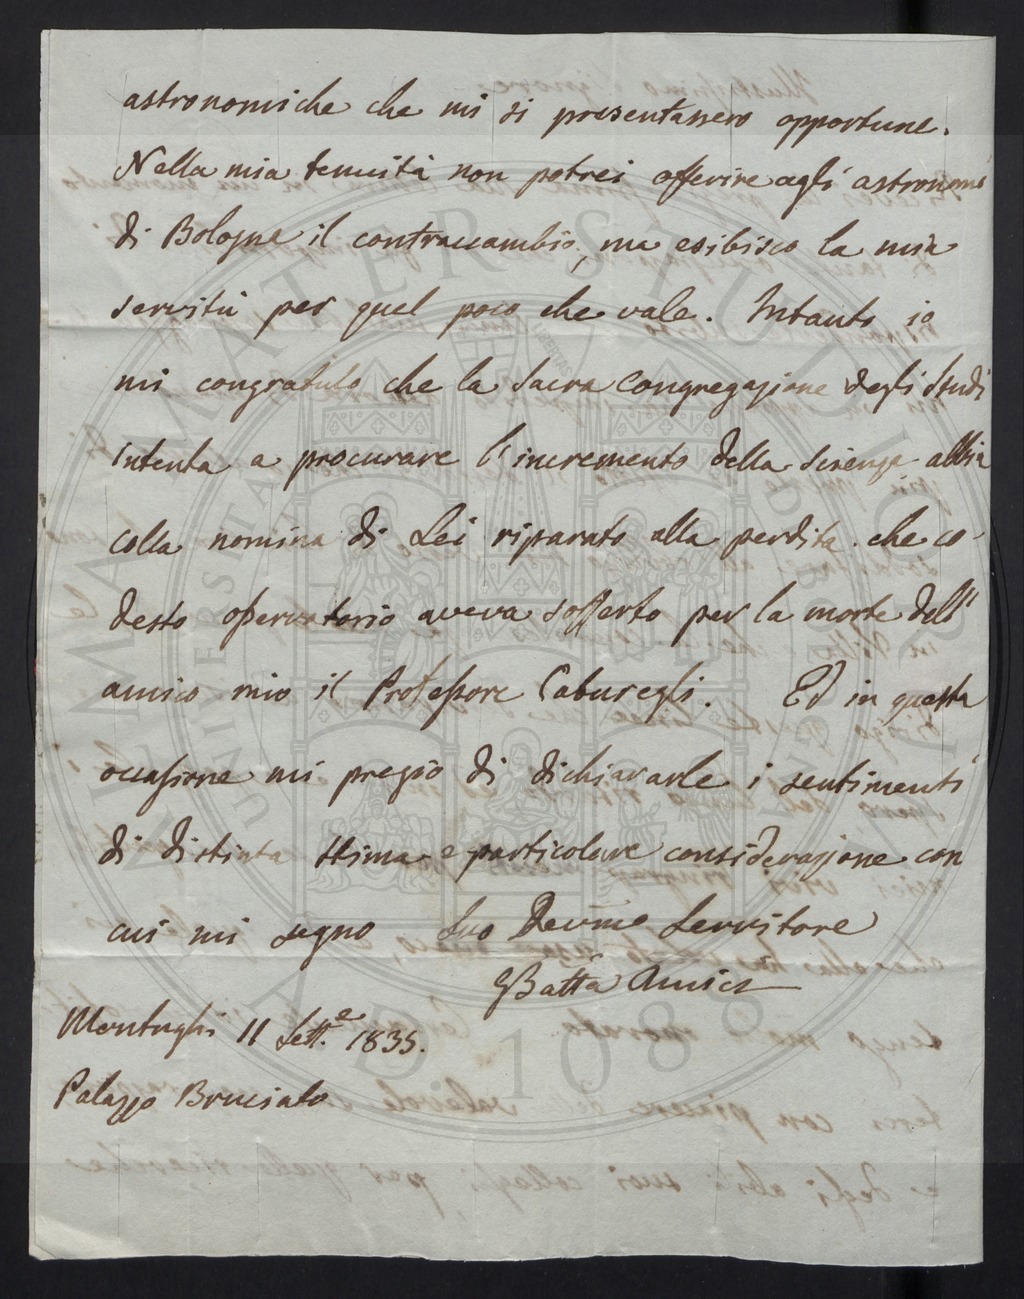 astronomiche che mi si presentassero opportune.
Nella mia tenuità non potrei offerire agli astronomi
di Bologna il contraccambio, ma esibisco la mia
servitù per quel poco che vale. Intanto io
mi congratulo che la Sacra Congregazione degli Studi
intenta a procurare l'incremento della scienza abbia
colla nomina di Lei riparato alla perdita che co-
desto osservatorio aveva sofferto per la morte dell'
amico mio il Professore Caturegli. Ed in questa
occasione mi pregio di dichiararle i sentimenti
di distinta stima e particolare considerazione con
cui mi segno Suo Devmo Servitore
GBatta Amici
Montughi 11 Sett.e 1835.
Palazzo Bruciato
ALMA MATER STUDIORUM
UNIVERSITA
A.D. 1088